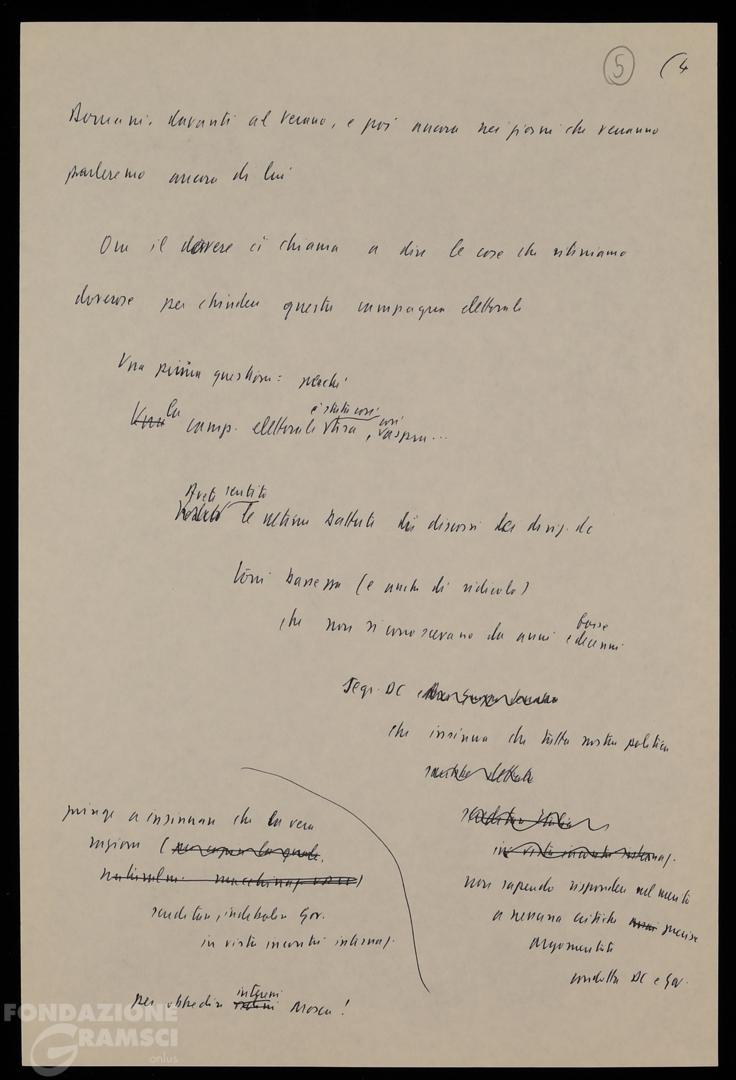 5 (4
Domani, davanti al Verano, e poi ancora nei giorni che verranno
parleremo ancora di lui
Ora il dovere ci chiama a dire le cose che riteniamo
doverose per chiudere questa campagna elettorale
Una prima questione: perché
Una la camp. elettorale è stata così , così aspra...
Avete sentito le ultime battute dei discorsi dei dirig. dc
toni bassezza (e anche di ridicolo)
che non si conoscevano da anni e forse decenni
Segr. DC
che insinua che tutta nostra politica
non sapendo rispondere nel merito
a nessuna critica precisa
argomentata
condotta DC e Gov.
spinge a insinuare che la vera
ragione (
screditare, indebolire Gov.
in vista incontri internaz.
per obbedire Mosca!
FONDAZIONE
GRAMSCI
onlus